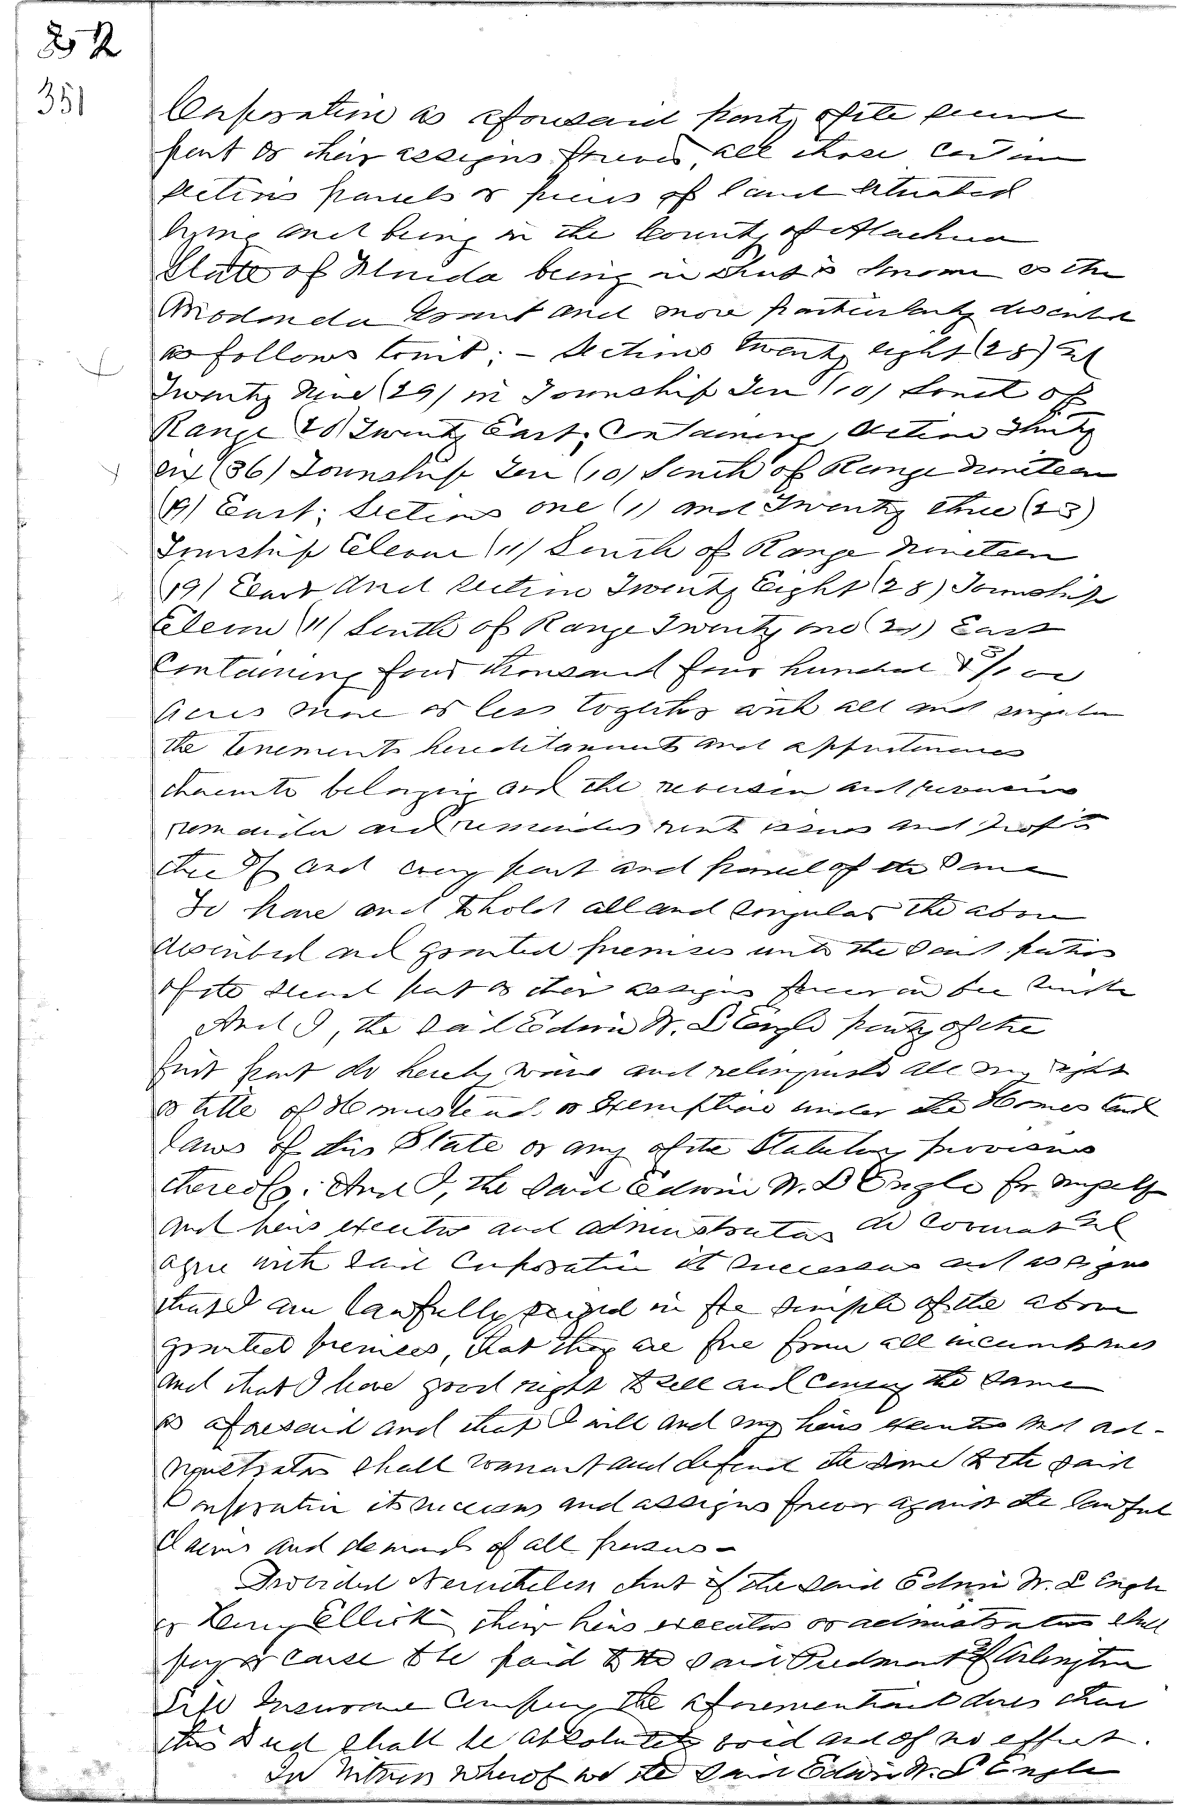 82
351
Corporation as aforesaid party of the second
part or their assigns forever, all those certain
sections parcels or pieces of land situated
lying and being in the County of Alachua
State of Florida being in what is known as the
Grant and more particularly described
as follows towit; – Sections Twenty eight (28) and
Twenty Nine (29) in Township Ten (10) South of
Range (20) Twenty East; Containing, Section Thirty
six (36) Township Ten (10) South of Range Nineteen
(19) East; Sections one (1) and Twenty three (23)
Township Eleven (11) South of Range Nineteen
(19) East and Section Twenty Eight (28) Township
Eleven (11) South of Range Twenty one (21) East
Containing four thousand four hundred &
acres more or less together with all and singular
the tenements hereditaments and appurtenances
thereunto belonging and the reversion and reversions
remainder and remainders rents issues and profits
thereof and every part and parcel of the same
To have and to hold all and singular the above
described and granted premises unto the said parties
of the second part or their assigns forever in fee simple
And I, the said Edwin W. L'Engle party of the
first part do hereby waive and relinquish all my right
or title of Homestead or exemption under the Homestead
laws of this State or any of the Statutory provisions
thereof; And I, the said Edwin W. L'Engle for myself
and heirs executors and administrators do covenant and
agree with said Corporation its successors and assigns
that I am lawfully seized in fee simple of the above
granted premises, that they are free from all incumbrances
and that I have good right to sell and convey the same
as aforesaid and that I will and my heirs executors and ad-
ministrators shall warrant and defend the same to the said
Corporation its successors and assigns forever against the lawful
claims and demands of all persons –
Provided Nevertheless that if the said Edwin W. L'Engle
or Henry Elliott their heirs executors or administrators shall
pay or cause to be paid to the said Piedmont & Arlington
Life Insurance Company the aforementioned dues then
this Deed shall be absolutely void and of no effect.
In Witness Whereof we the said Edwin W. L'Engle